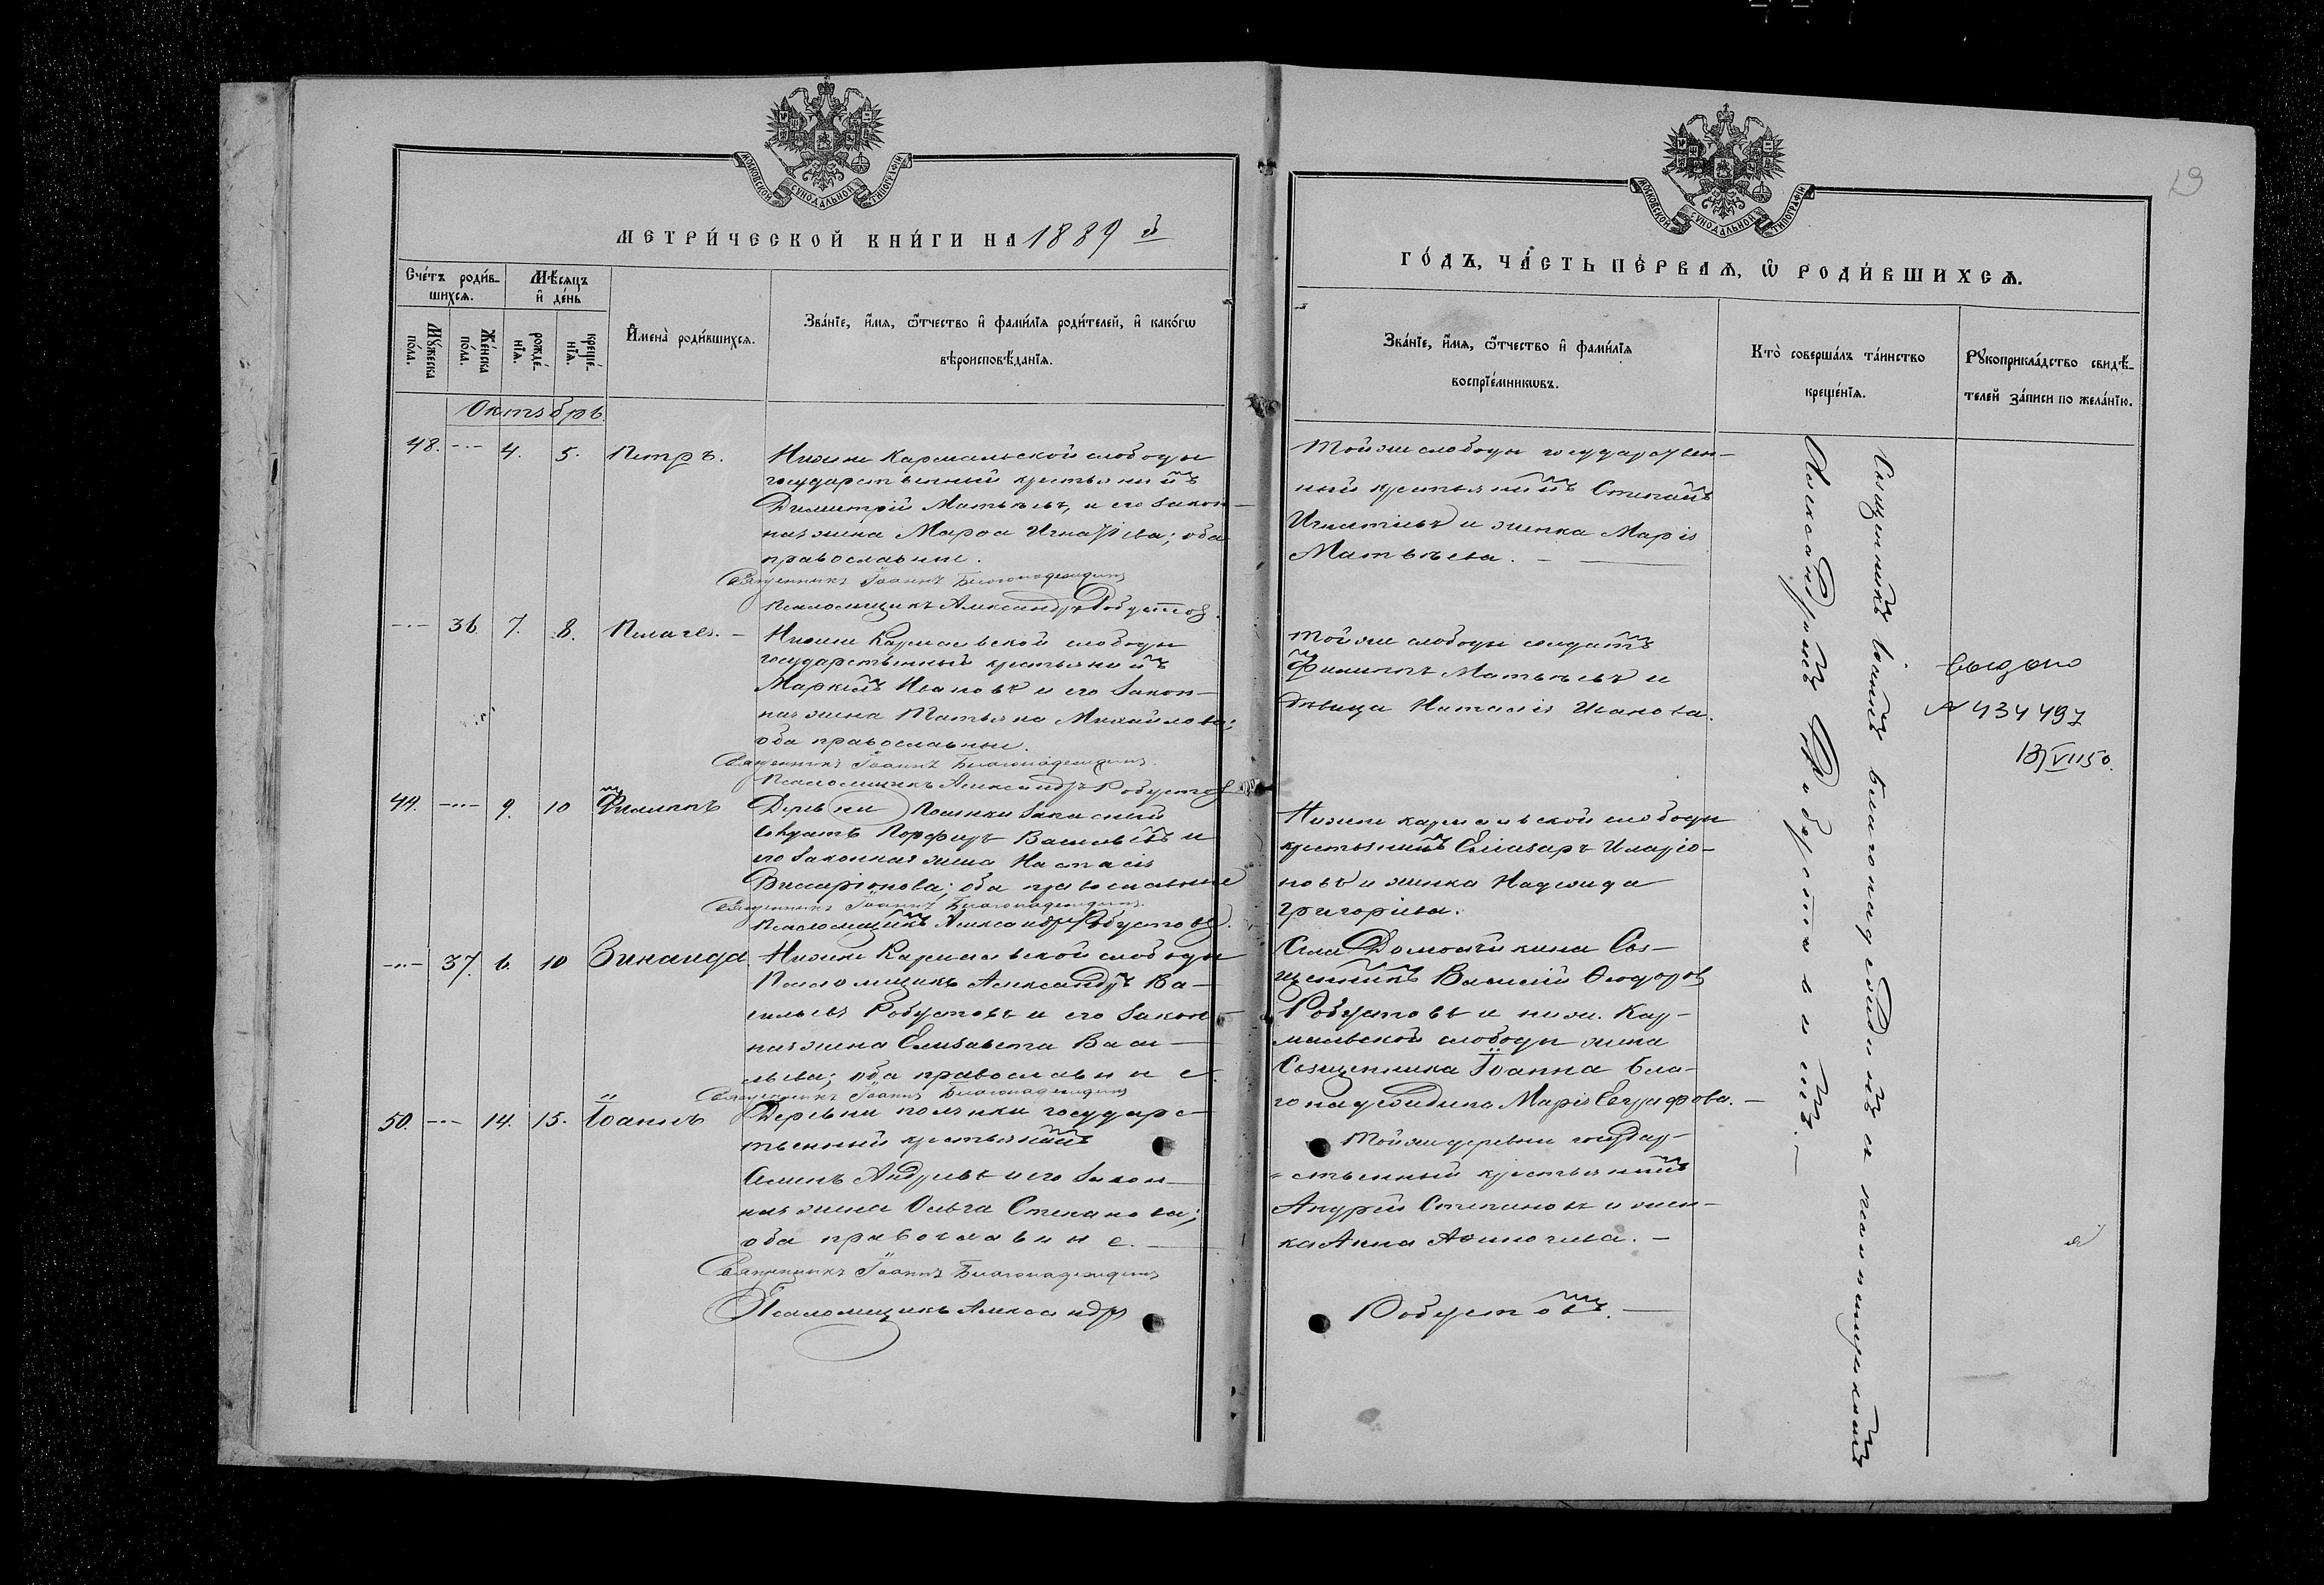 МОСКОВСКОЙ СѴНОДАЛЬНОЙ ТИПОГРАФІИ
МЕТРИ́ЧЕСКОЙ КНИ́ГИ НА 1889 й
Сче́тъ роди́в-
шихся.
Мѣ́сяцъ
и҆ де́нь
Мꙋ́жеска
по́ла.
Же́нска
по́ла.
рожде́-
нїѧ.
креще́-
нїѧ.
И҆мена̀ роди́вшихсѧ.
Зва́нїе, и҆́мѧ, ѻ҆́тчество и҆ фами́лїѧ роди́телей, и҆ како́гѡ
вѣроисповѣ́данїѧ.
Октябрь
48. -·- 4. 5. Петръ.
Нижне Кармальской слободы
государственный крестьянинъ
Димитрій Матвѣевъ, и его закон-
ная жена Марѳа Игнатіева; оба
православные.
Священникъ Іоаннъ Благонадеждинъ
Псаломщикъ Александръ Робустовъ.
-·- 36. 7. 8. Пелагея. -
Нижне Кармальской слободы
государственный крестьянинъ
Маркелъ Ивановъ и его закон-
ная жена Татьяна Михайлова;
оба православные.
Священникъ Іоаннъ Благонадеждинъ.
Псаломщикъ Александръ Робустовъ
49. -·- 9. 10 Филиппъ
Деревни Полянки запасный
солдатъ Порфиръ Васильевъ и
его законная жена Настасія
Виссаріонова; оба православные
Священникъ Іоаннъ Благонадеждинъ.
Псаломщикъ Александръ Робустовъ.
-·- 37. 6. 10 Зинаида.
Нижне Кармальской слободы
Псаломщикъ Александръ Ва-
сильевъ Робустовъ и его закон-
ная жена Елизавета Васи-
льева; оба православные.
Священникъ Іоаннъ Благонадеждинъ
50. -·- 14. 15. Іоаннъ
Деревни полянки государс-
твенный крестьянинъ
Семенъ Андреевъ и его закон-
ная жена Ольга Степанова;
оба православные.
Священникъ Іоаннъ Благонадеждинъ
Псаломщикъ Александръ
29
МОСКОВСКОЙ СѴНОДАЛЬНОЙ ТИПОГРАФІИ
ГО́ДЪ, ЧА́СТЬ ПЕ́РВАѦ, Ѡ҆ РОДИ́ВШИХСѦ.
Зва́нїе, и҆́мѧ, ѻ҆́тчество и҆ фами́лїѧ
воспрїе́мникѡвъ.
Кто̀ соверша́лъ та́инство
креще́нїѧ.
Рꙋкоприкла́дство свидѣ́-
телей за́писи по жела́нїю.
Той же слободы государствен-
ный крестьянинъ Степанъ
Игнатіевъ и женка Марія
Матвѣева.
Той же слободы солдатъ
Филиппъ Матвѣевъ и
дѣвица Наталія Иванова.
Нижне кармальской слободы
крестьянинъ Елеазаръ Иларіо-
новъ и женка Надежда
Григорьева.
Села Домосѣйкина Свя-
щенникъ Василій Ѳеодоровъ
Робустовъ и ниж. Кар-
мальской слободы жена
Священника Іоанна Бла-
гонадеждина Марія Евграфова.-
Той же деревни государ-
=ственный крестьянинъ
Андрей Степановъ и жен-
ка Анна
Робустовъ.
Священникъ Іоаннъ Благонадеждинъ и псаломщикомъ
Александромъ Робустовымъ.
выдано
№ 434497
13/VII 50.